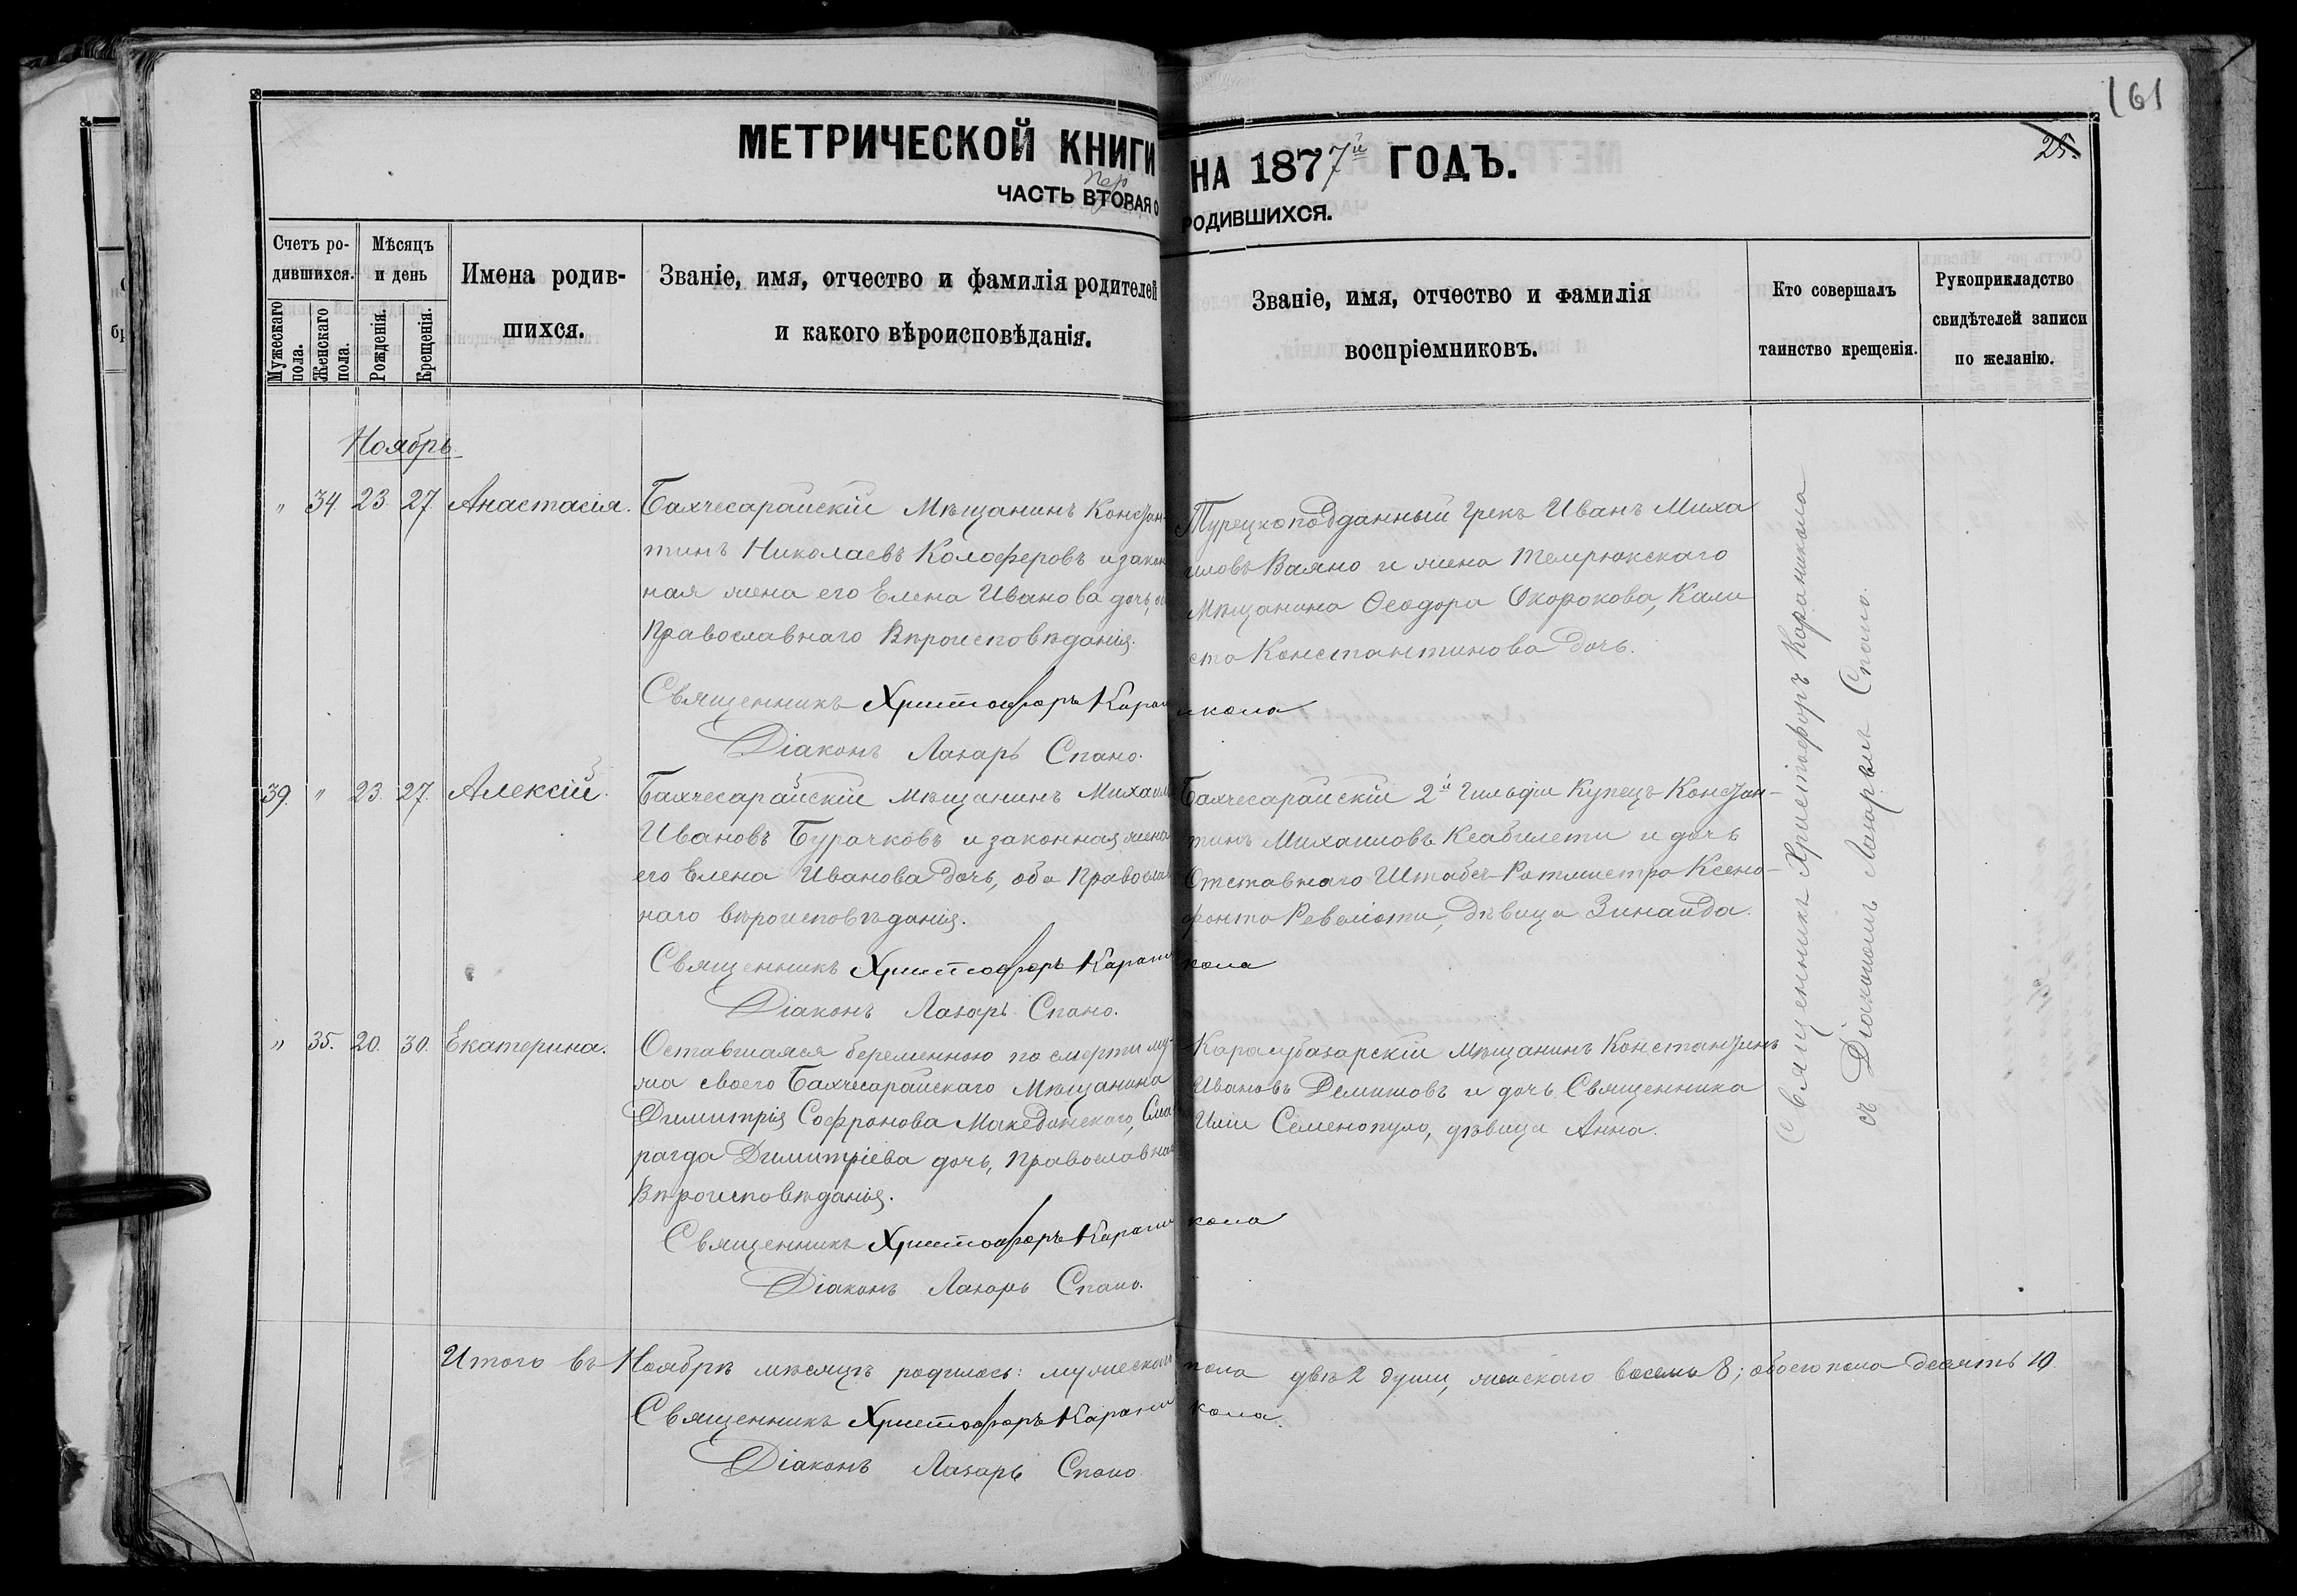 161
25.
МЕТРИЧЕСКОЙ КНИГИ НА 1877й ГОДЪ.
пер
ЧАСТЬ ВТОРАЯ О РОДИВШИХСЯ.
Счетъ ро-
дившихся.
Мужескаго
пола.
Женскаго
пола.
Мѣсяцъ
и день
Рожденія.
Крещенія.
Имена родив-
шихся.
Званіе, имя, отчество и фамилія родителей
и какого вѣроисповѣданія.
Званіе, имя, отчество и фамилія
воспріемниковъ.
Кто совершалъ
таинство крещенія.
Рукоприкладство
свидѣтелей записи
по желанію.
Ноябрь
" 34. 23. 27. Анастасія.
Бахчесарайскій Мѣщанинъ Констан-
тинъ Николаевъ Колоферовъ и закон
ная жена его Елена Иванова дочь, об
Православнаго Вѣроисповѣданія.
Священникъ Христофоръ Карани
кола
Діаконъ Лазарь Спано.
Турецкоподданный Грекъ Иванъ Миха
иловъ Ваяно и жена Темрюкскаго
Мѣщанина Ѳеодора Окорокова, Кали
ста Константинова дочь.
39. " 23. 27. Алексій.
Бахчесарайскій Мѣщанинъ Михаил
Ивановъ Бурачковъ и законная жена
его Елена Иванова дочь, оба Православ
наго вѣроисповѣданія.
Священникъ Христофоръ Карани
кола
Діаконъ Лазарь Спано.
Бахчесарайскій 2й Гильдіи Купецъ Констан-
тинъ Михаиловъ Ксабилети и дочь
Отставнаго Штабсъ-Ротмистра Ксено-
фонта Ревеліоти, Дѣвица Зинаида.
" 35. 20. 30. Екатерина.
Оставшаяся беременною по смерти му-
жа своего Бахчесарайскаго Мѣщанина
Димитрія Софронова Македонскаго, Сма
рагда Димитріева дочь, Православнаго
Вѣроисповѣданія.
Священникъ Христофоръ Карани
кола
Діаконъ Лазарь Спано.
Карасубазарскій Мѣщанинъ Константинъ
Ивановъ Демишовъ и дочь Священника
Иліи Семенопуло, дѣвица Анна.
Священникъ Христофоръ Караникола
съ Діакономъ Лазаремъ Спано.
Итого въ Ноябрѣ мѣсяцѣ родилось: мужескаго пола двѣ 2 души, женскаго восемь 8; обоего пола десять 10.
Священникъ Христофоръ Карани
кола.
Діаконъ Лазарь Спано